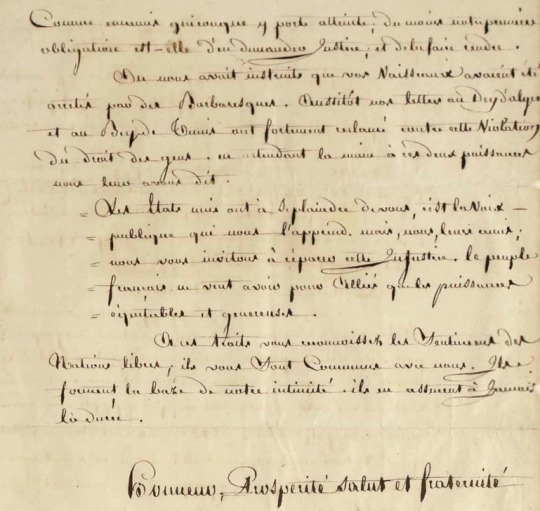 Comme ennemis quiconque y porte atteinte; du moins notre première
obligatoire est-elle d'en demander Justice, et de la faire rendre.
On nous avait instruits que vos Vaisseaux avaient été
arretés par des Barbaresques. Aussitôt nos lettres au Dey d'alger
et au Bey de Tunis ont fortement reclamé contre cette Violation
du droit des gens. en tendant la main à ces deux puissances
nous leur avons dit.
= Les Etats unis ont à se plaindre de vous, c'est la voix
= publique qui nous l'apprend. mais, nous, leurs amis;
= nous vous invitons à réparer cette Injustice. le peuple
= français ne veut avoir pour Alliés que les puissances
= équitables et genereuses.
A ces traits vous reconnoissez les Sentimens des
Nations libres, ils vous Sont Communs avec nous. Ils
forment la baze de notre intimité. ils en assurent à Jamais
la durée.
Honneur, Prosperité salut et fraternité